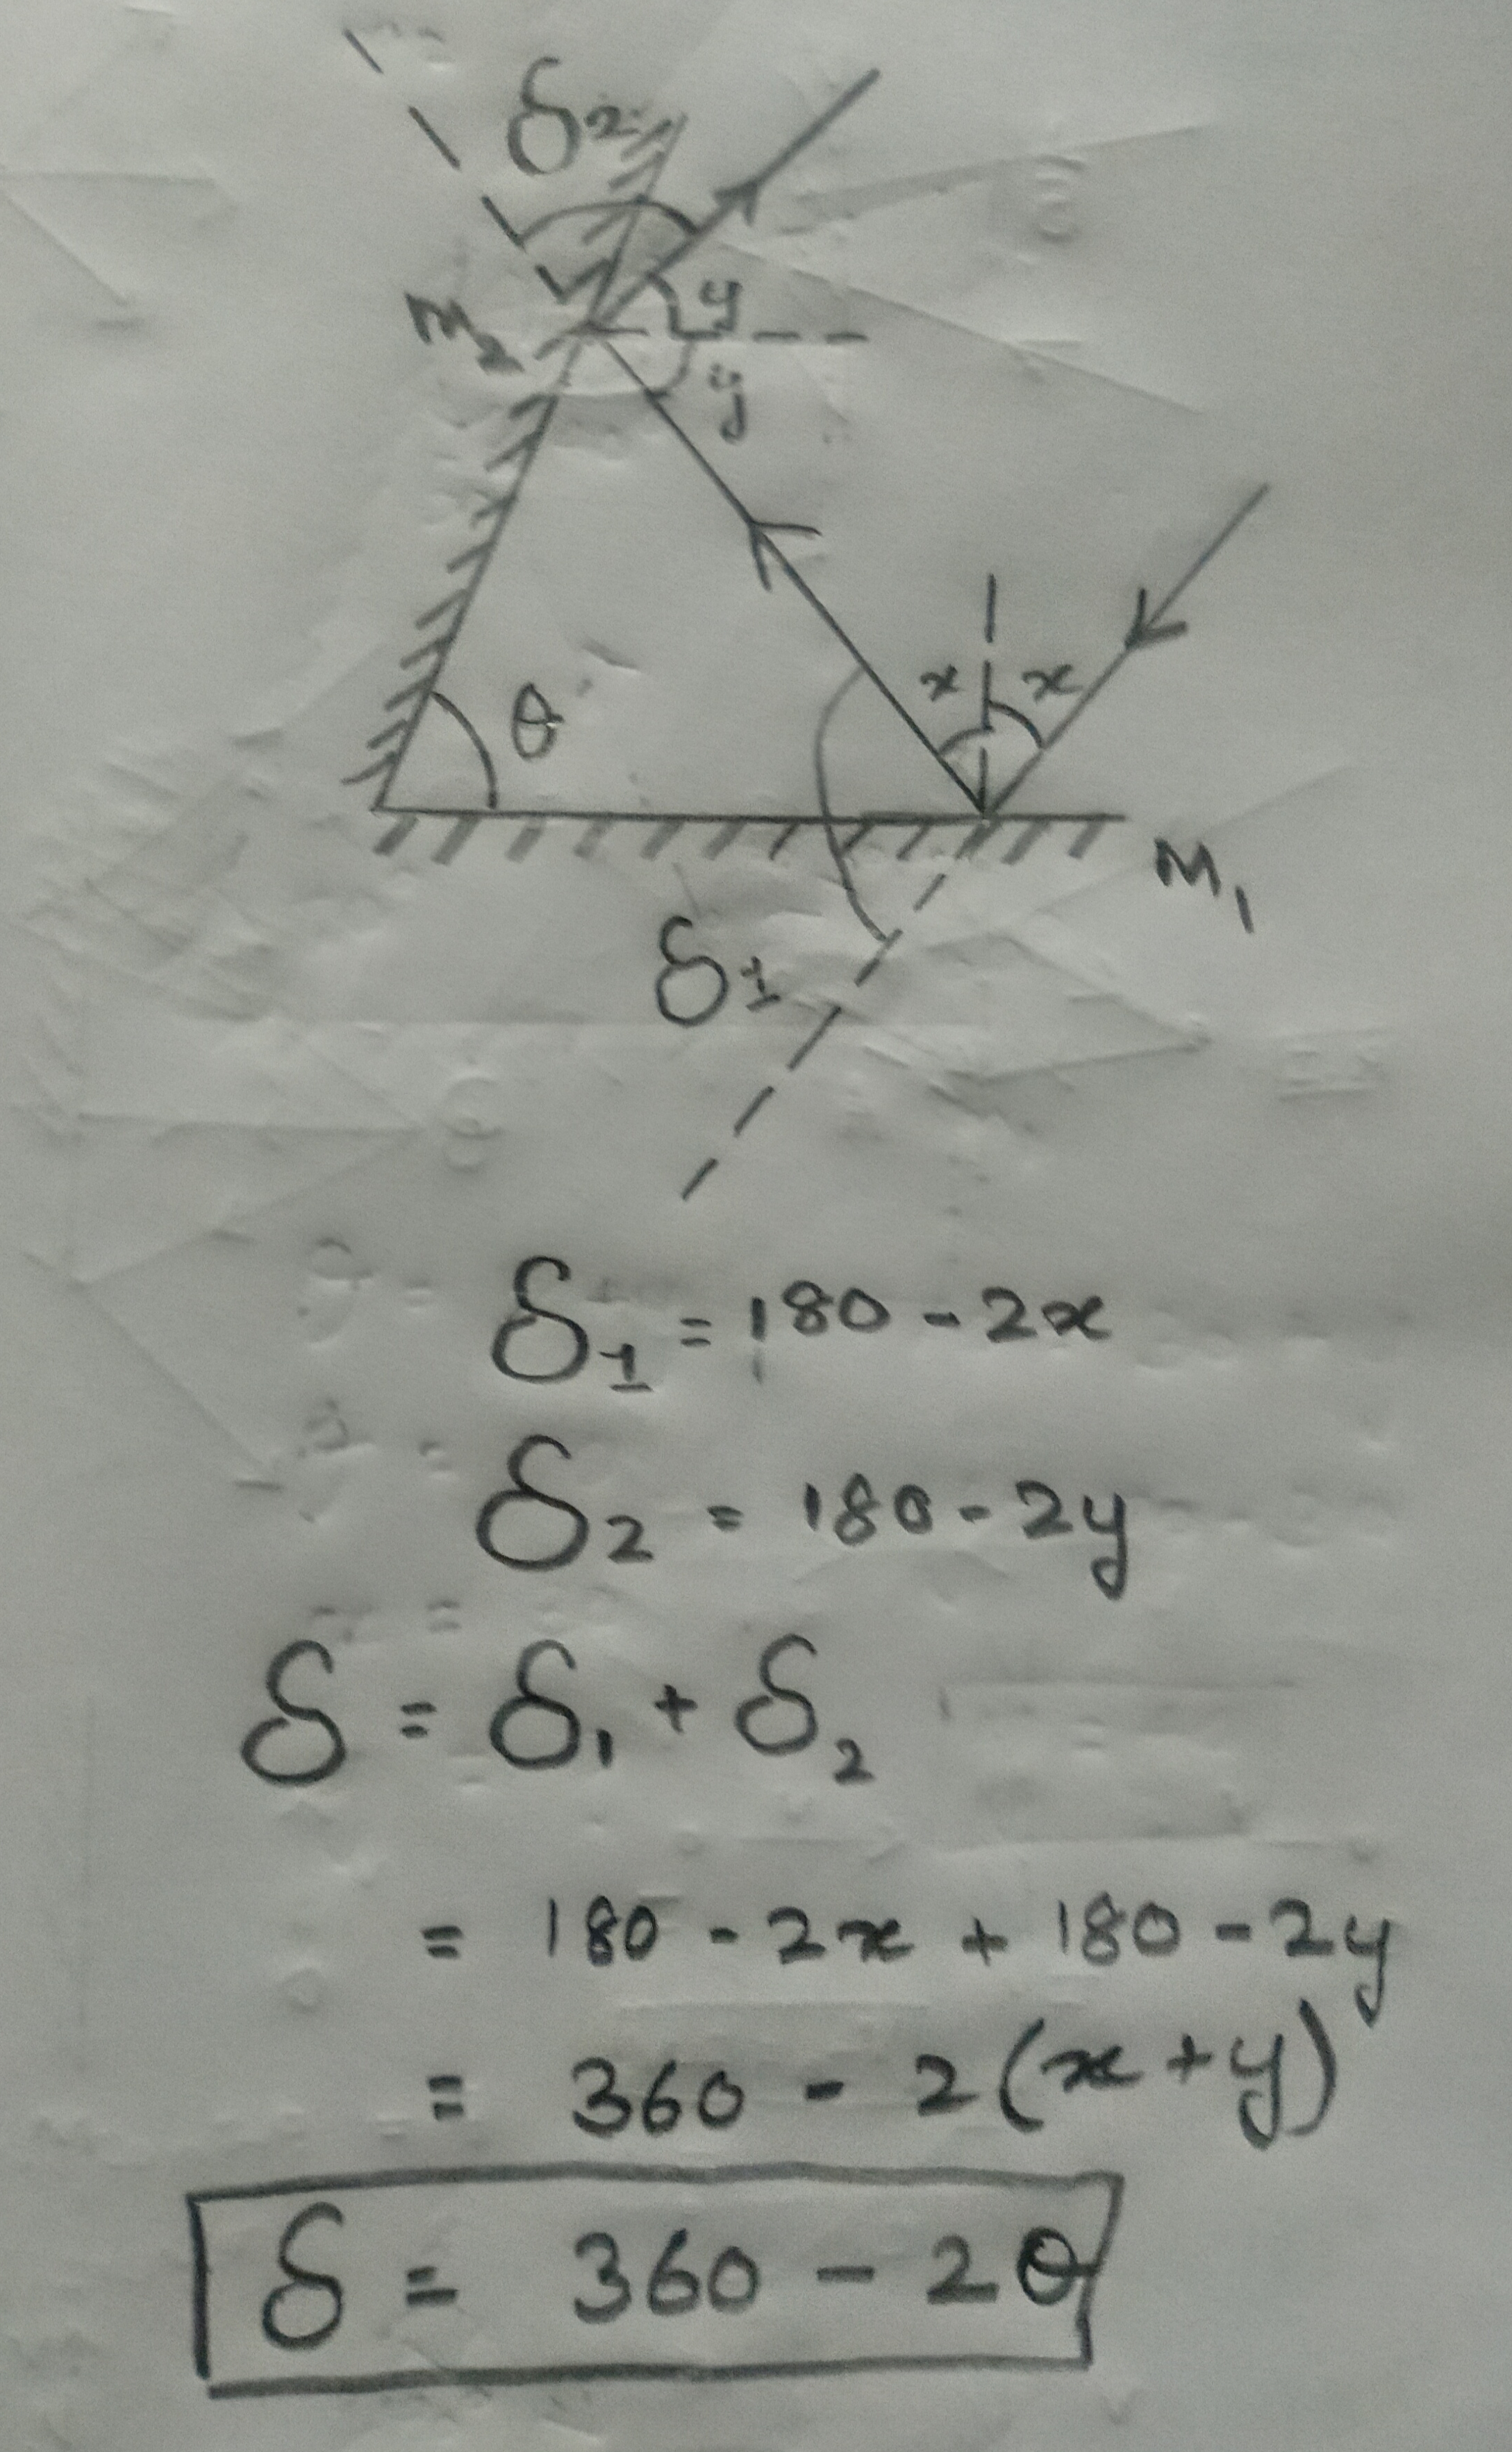 δ2
y
M2
y
x x
θ
M1
δ1
δ1 = 180 - 2x
δ2 = 180 - 2y
δ = δ1 + δ2
= 180 - 2x + 180 - 2y
= 360 - 2(x+y)
δ = 360 - 2θ